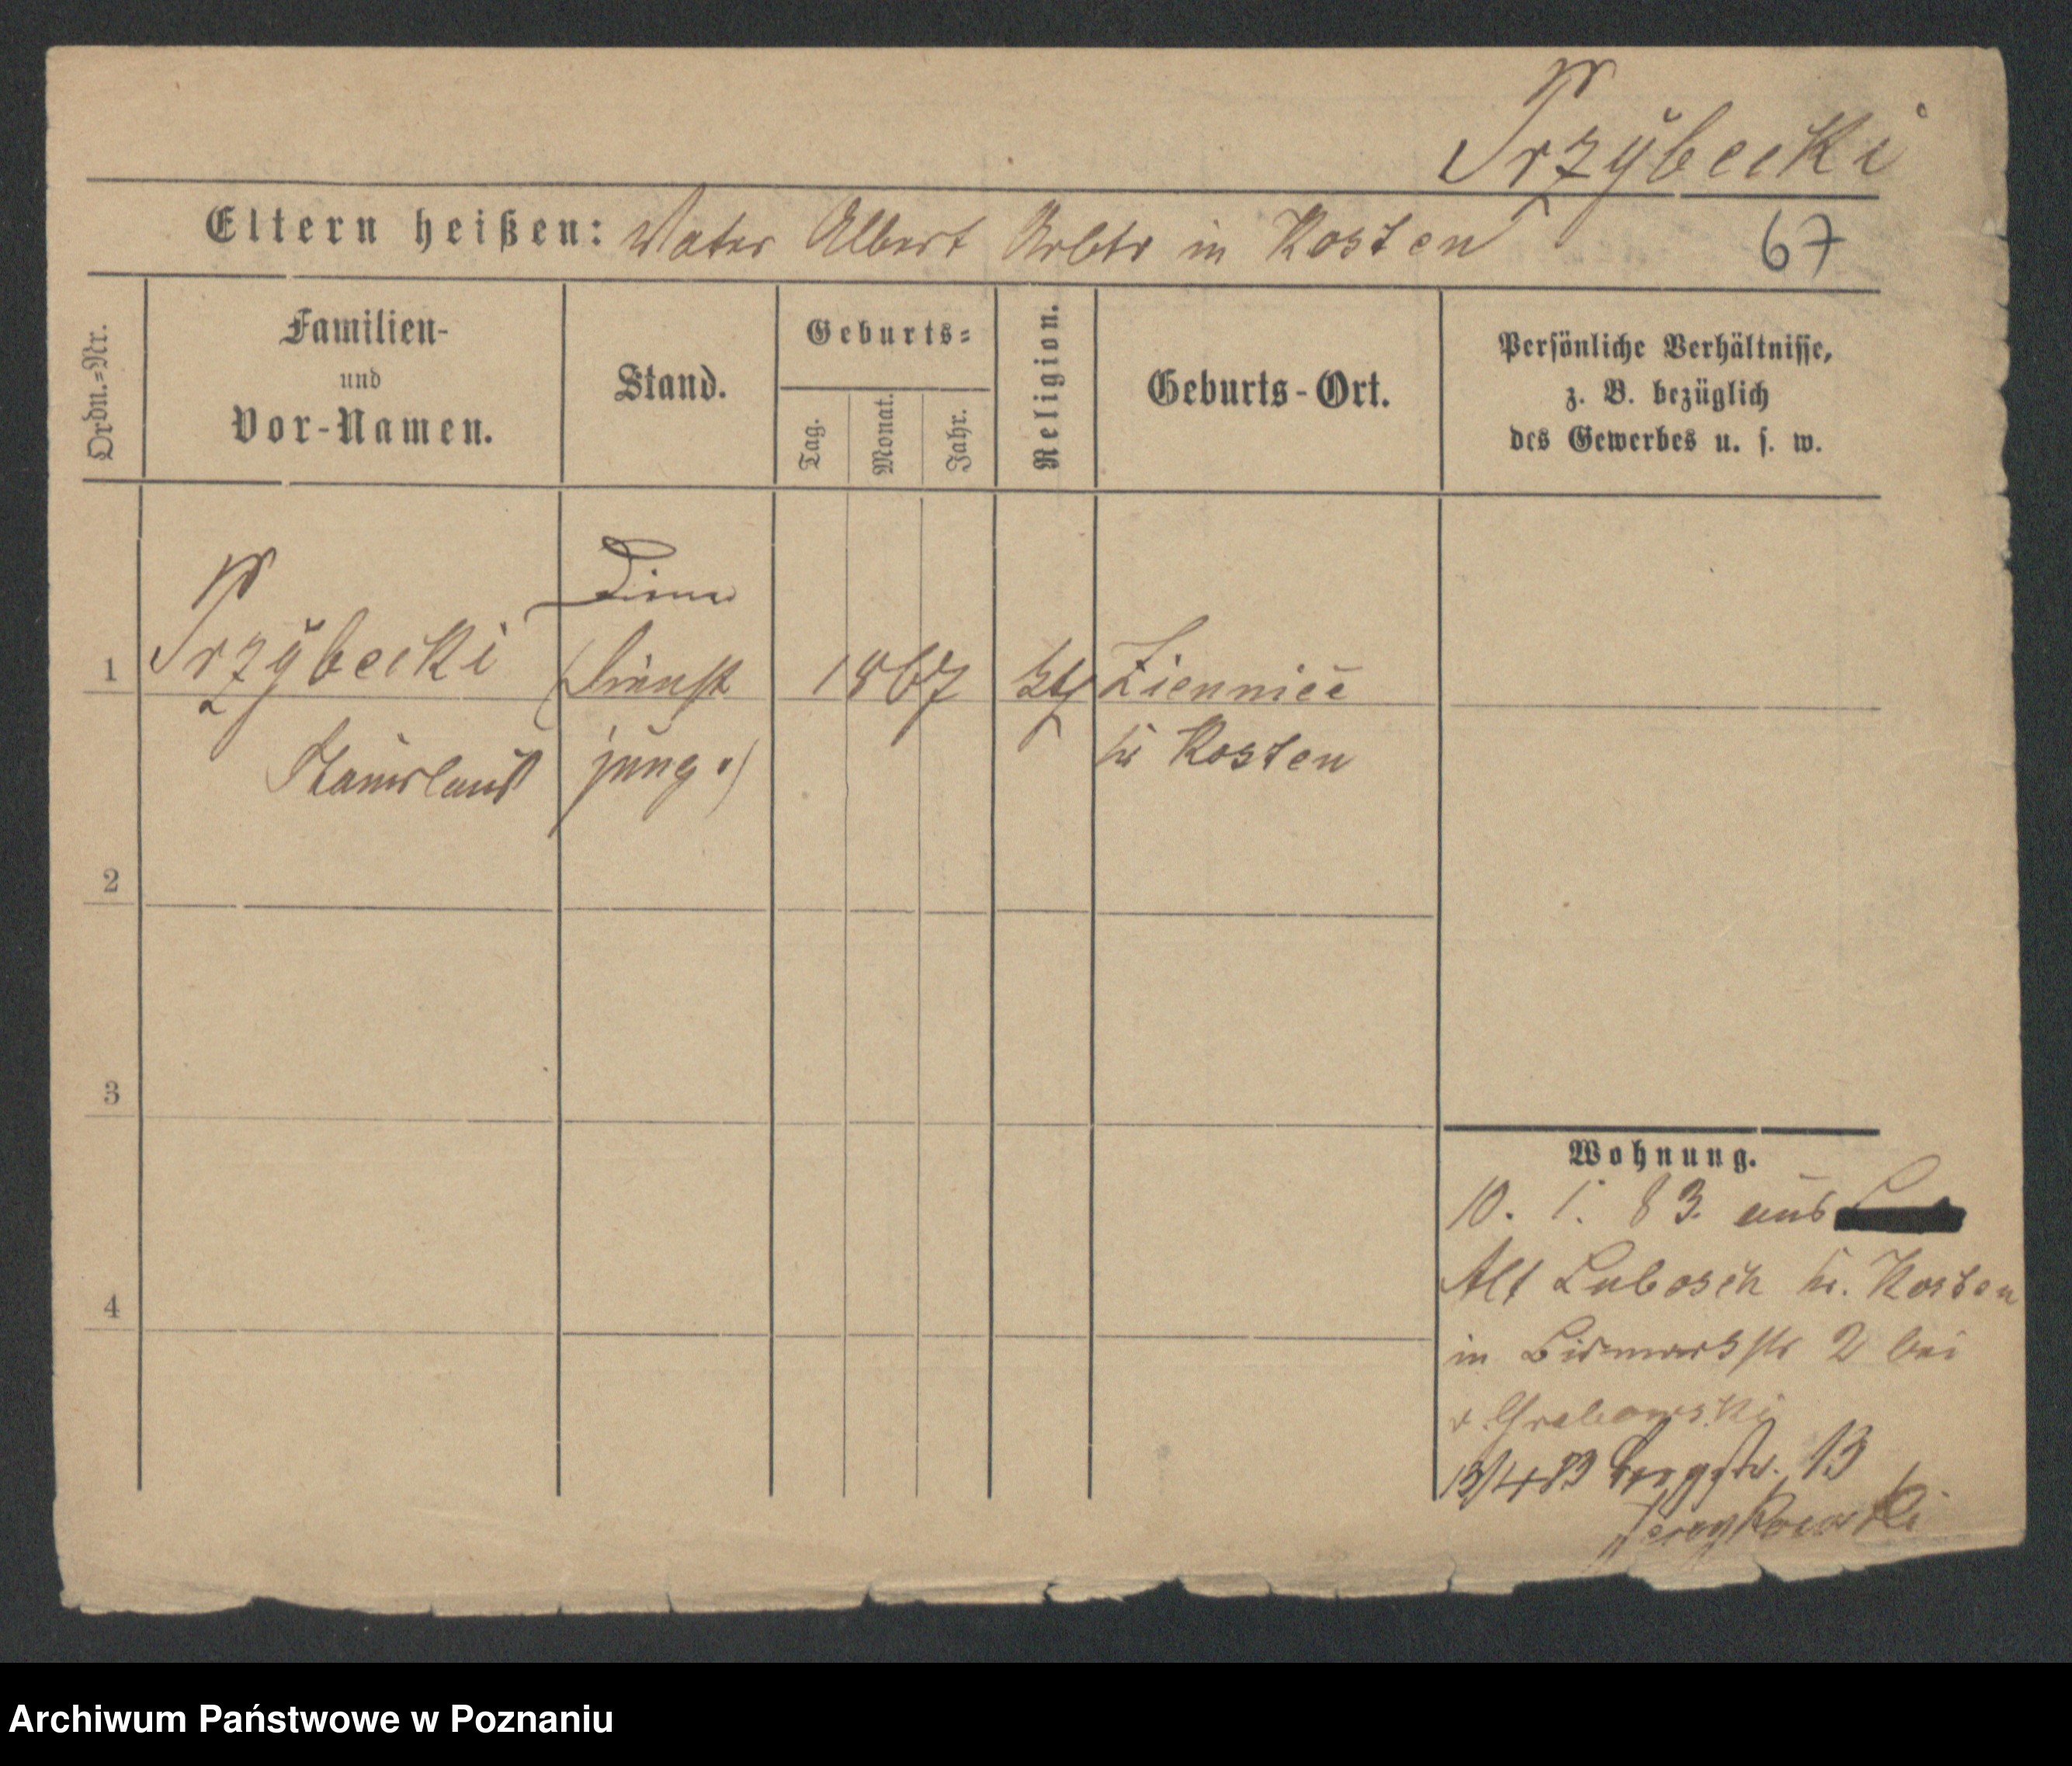 Przybecki
Eltern heißen: Vater Albert Arbtr in Kosten
67
Ordn.-Nr.
Familien-
und
Vor-Namen.
Stand.
Geburts-
Tag.
Monat.
Jahr.
Religion.
Geburts-Ort.
Persönliche Verhältnisse,
z. B. bezüglich
des Gewerbes u. s. w.
1
Przybecki
Stanislaus
Diener
(Dienst
jung.)
1867
kth
Zienniec
kr Kosten
2
3
4
Wohnung.
10. 1. 83. aus
Alt Lubosch kr. Kosten
in Bismarkstr 2 bei
v Grabowski
13/4 83 Bergstr. 13
Archiwum Państwowe w Poznaniu